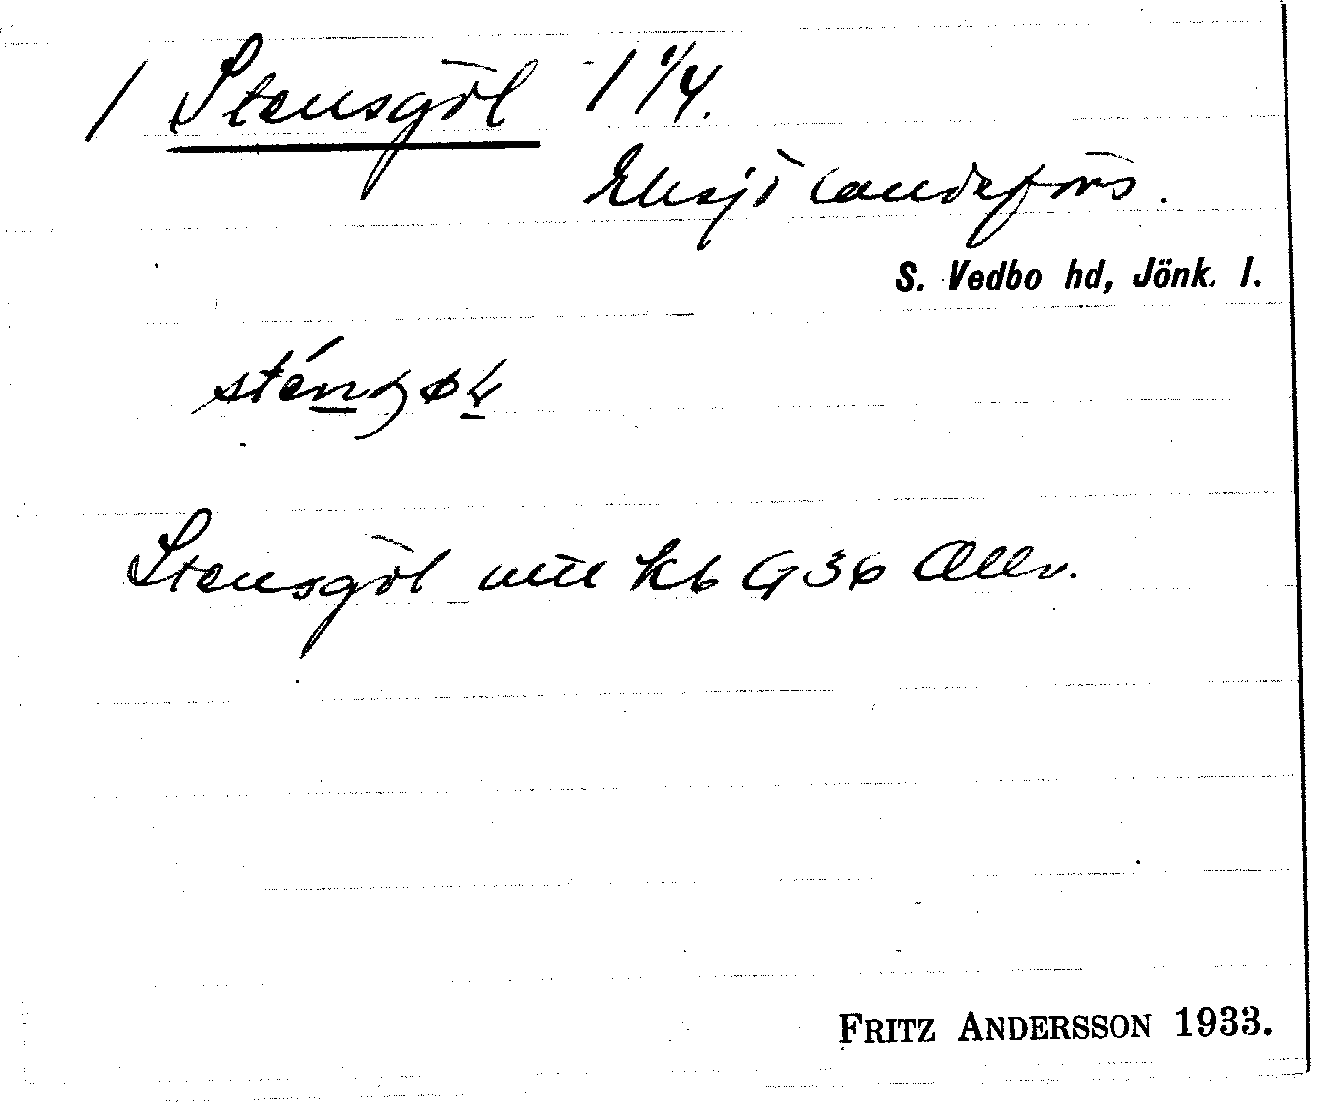 1 Stensgöl 1 1/4.
Eksjö landsförs.
S. Vedbo hd, Jönk. l.
Stensgöl utit kb G36 Allv.
FRITZ ANDERSSON 1933.